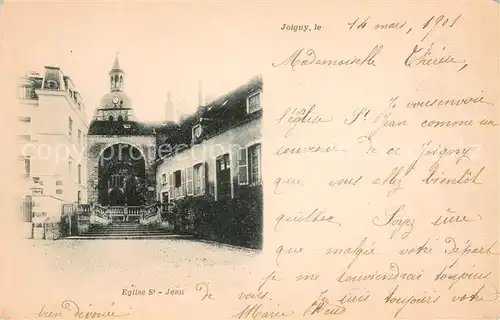 Joigny, le 14 mars, 1901
Mademoiselle Thérèse,
Je vous envoie
l'église St Jean comme un
souvenir de ce Joigny
que vous allez bientôt
quittez. Soyez sûre
que malgré votre Départ
je me souviendrai toujours
de vous. Je suis toujours votre
bien dévouée Marie
Eglise St - Jean